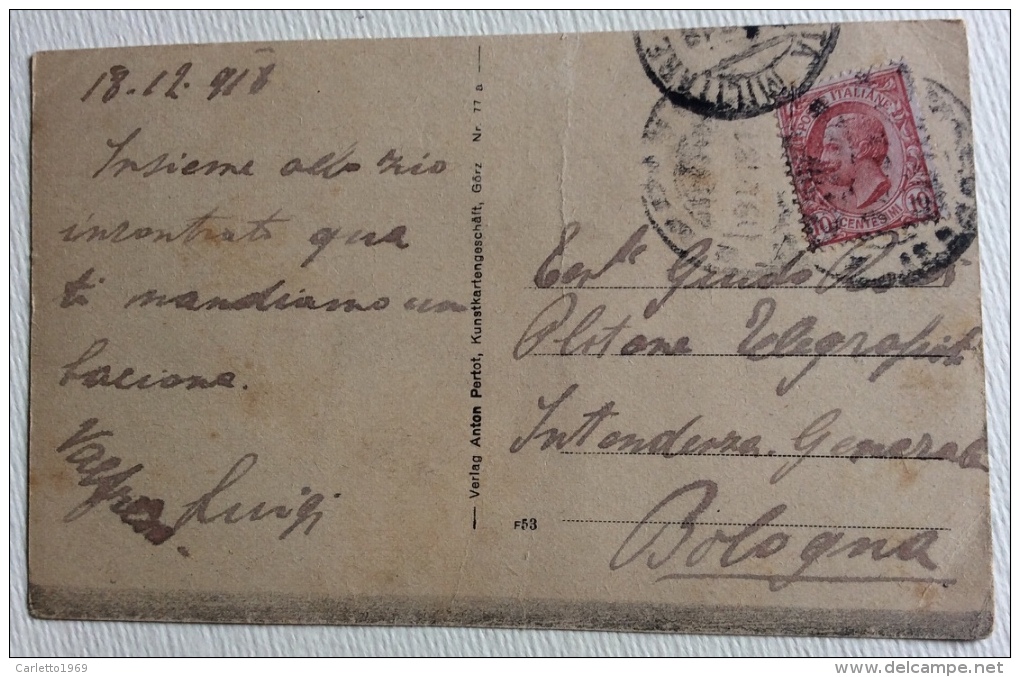 18.12.918
Insieme allo zio
incontrato qua
ti mandiamo un
bacione.
Luigi
Verlag Anton Pertot, Kunstkartengeschäft, Görz Nr. 77 B
F53
TA MILITARE
POSTE ITALIANE
10 CENTESIMI 10
Guido
Plotone Telegrafisti
Intendenza Generale
Bologna
Carletto1969
delcampe.net